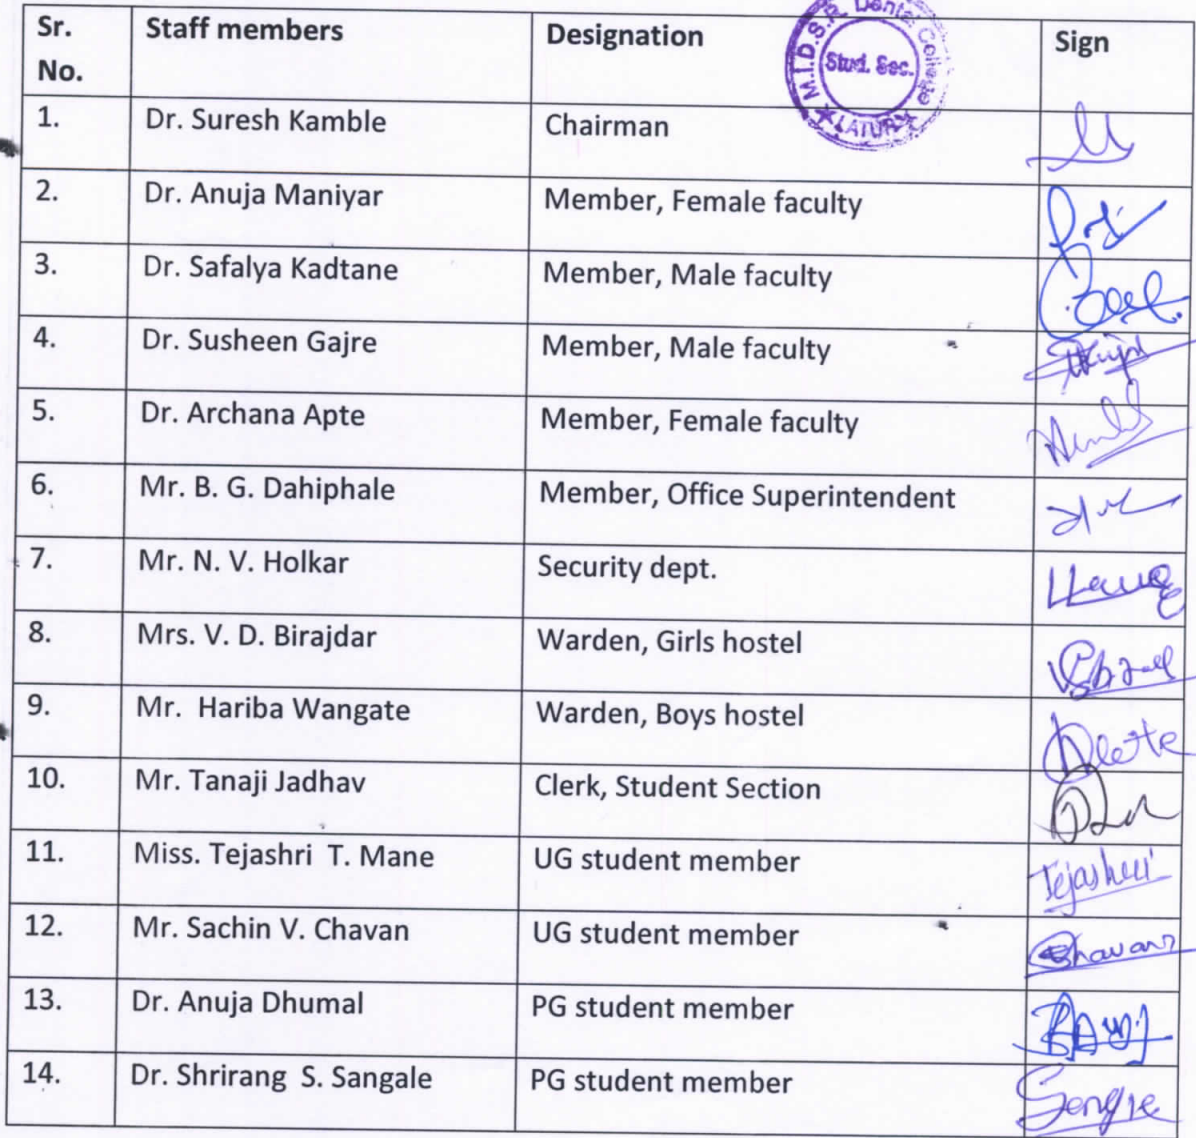 Sr. No. Staff members Designation Sign
M.I.D.S.R. Dental College
Stud. Sec.
LATUR
1. Dr. Suresh Kamble Chairman
2. Dr. Anuja Maniyar Member, Female faculty
3. Dr. Safalya Kadtane Member, Male faculty
4. Dr. Susheen Gajre Member, Male faculty
5. Dr. Archana Apte Member, Female faculty
6. Mr. B. G. Dahiphale Member, Office Superintendent
7. Mr. N. V. Holkar Security dept.
8. Mrs. V. D. Birajdar Warden, Girls hostel
9. Mr. Hariba Wangate Warden, Boys hostel
10. Mr. Tanaji Jadhav Clerk, Student Section
11. Miss. Tejashri T. Mane UG student member Tejashri
12. Mr. Sachin V. Chavan UG student member
13. Dr. Anuja Dhumal PG student member
14. Dr. Shrirang S. Sangale PG student member